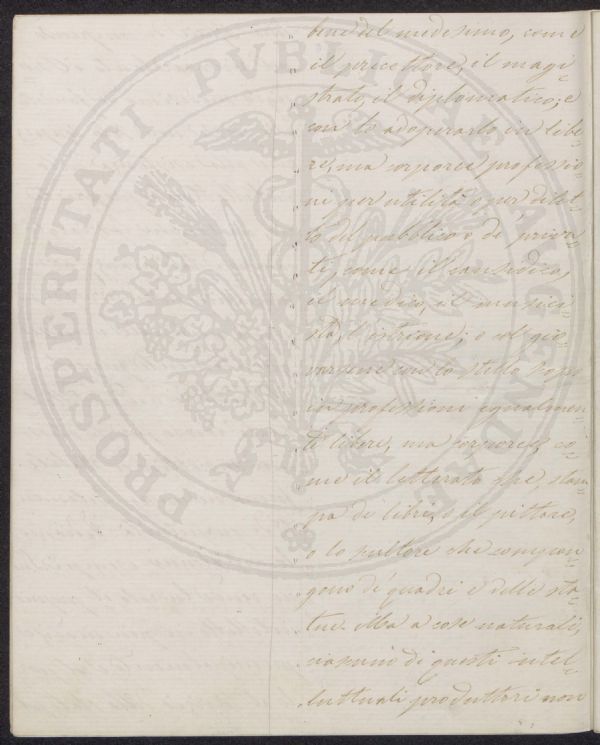 PROSPERITATI PVBLICAE AVGENDAE
bene del medesimo, come
il precettore, il magi=
strato, il diplomatico; e
con lo adoperarlo in libe=
re, ma corporee professio=
ni per utilità o per dilet=
to del pubblico o di priva=
ti, come il causidico,
il medico, il musici=
sta, l'istrione; o col gio=
varsene con lo stesso scopo
in professioni egualmen=
ti libere, ma corporee, co=
me il letterato che stam=
pa di libri, o il pittore,
o lo scultore che compon=
gono di quadri e delle sta=
tue. Ma a cose naturali,
nissuno di questi intel=
lettuali produttori non